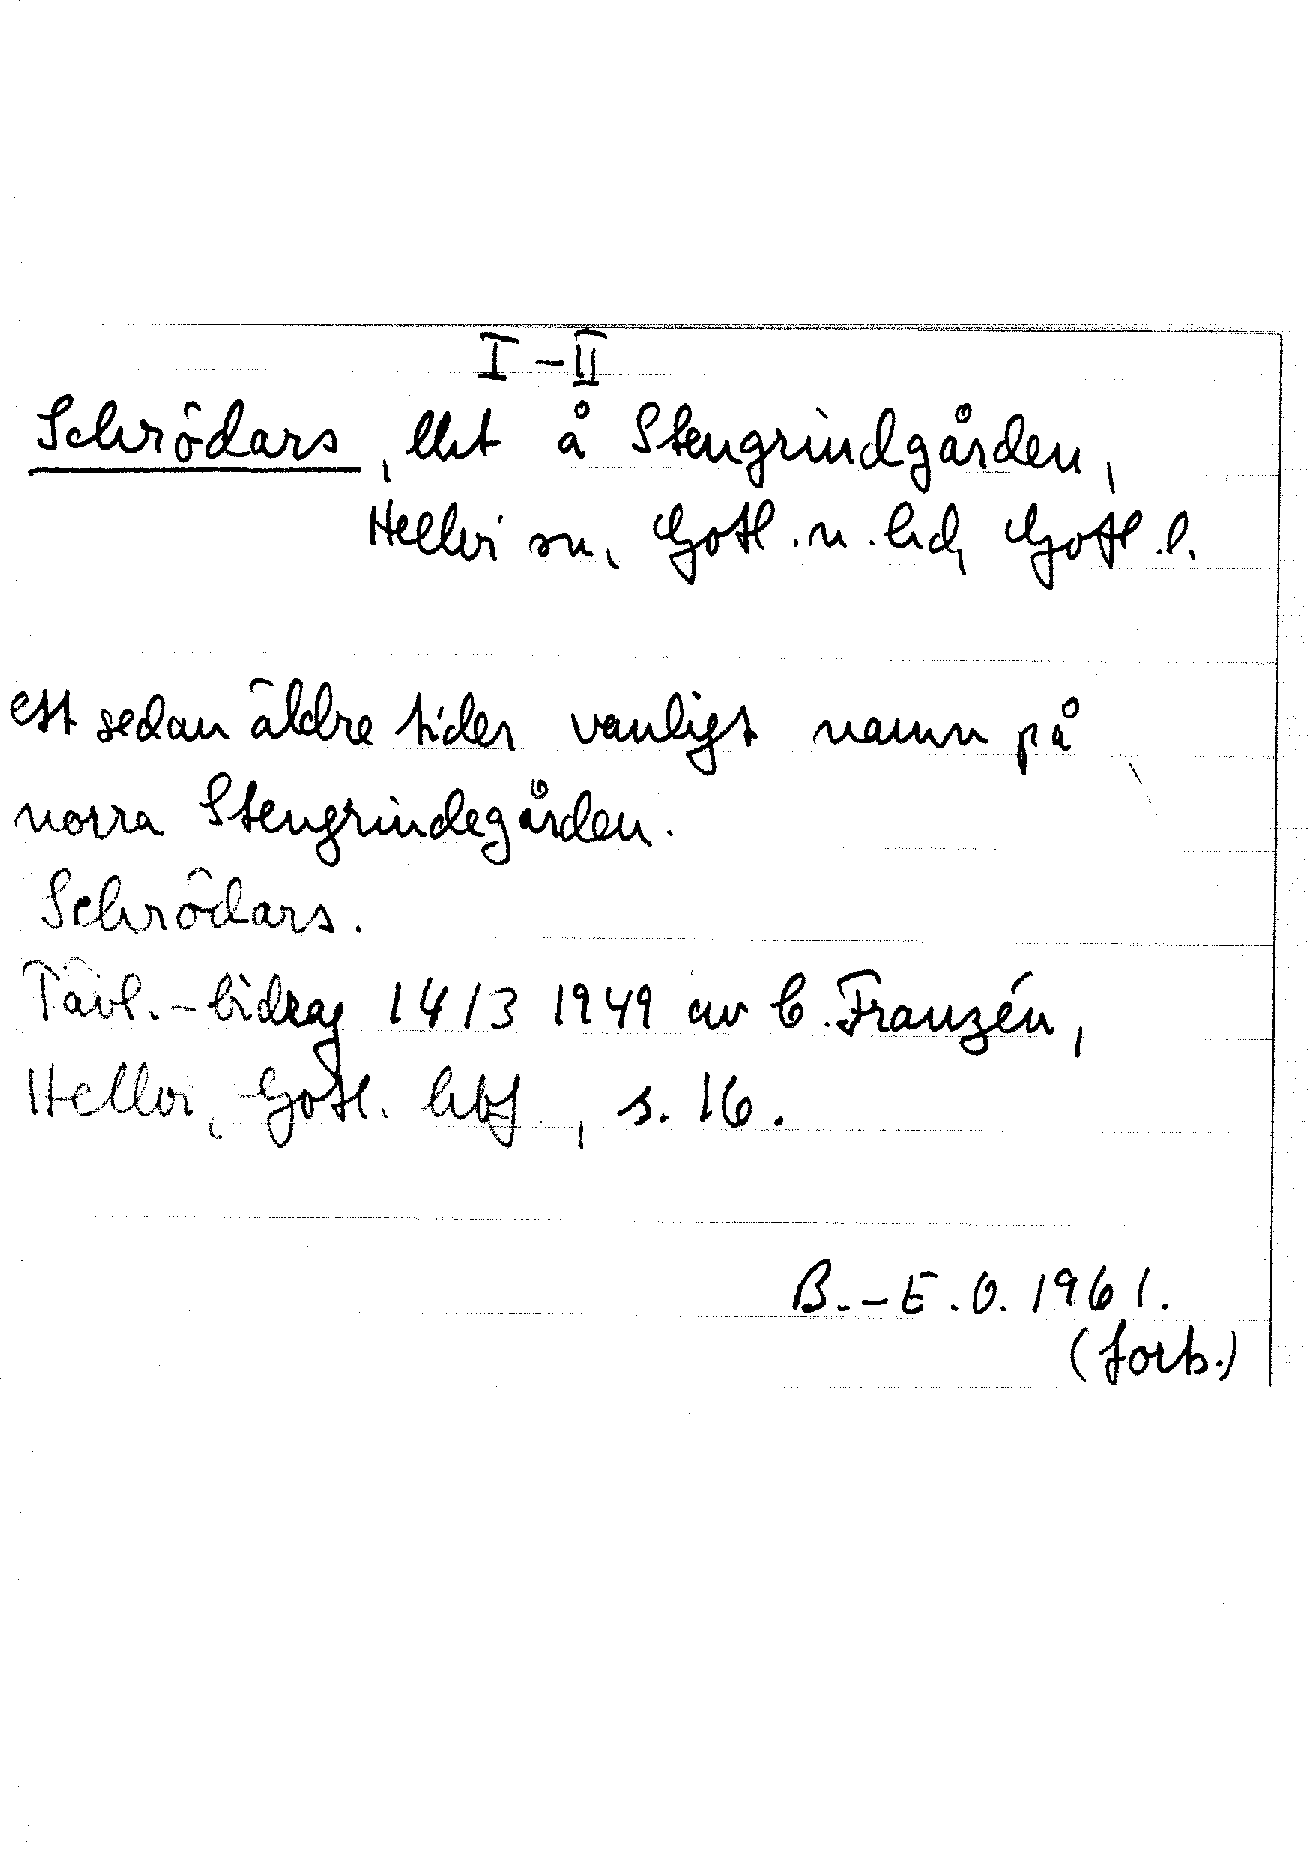 I-II
Schrödars, lht å Stengrindgården,
Hellvi sn, Gotl. n. hd, Gotl. l.
ett sedan äldre tider vanligt namn på
norra Stengrindegården.
Schrödars.
Tävl.-bidrag 14/3 1949 av C. Franzén,
Hellvi, Gotl. hbf, s. 16.
B.-E. O. 1961.
(forts.)